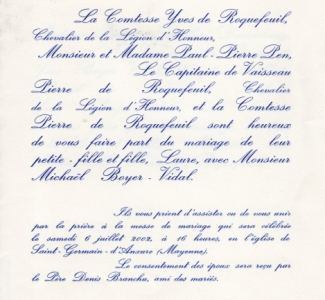 La Comtesse Yves de Roquefeuil,
Chevalier de la Légion d'Honneur,
Monsieur et Madame Paul-Pierre Pen,
Le Capitaine de Vaisseau
Pierre de Roquefeuil, Chevalier
de la Légion d'Honneur, et la Comtesse
Pierre de Roquefeuil sont heureux
de vous faire part du mariage de leur
petite-fille et fille, Laure, avec Monsieur
Michaël Boyer-Vidal.
Ils vous prient d'assister ou de vous unir
par la prière à la messe de mariage qui sera célébrée
le samedi 6 juillet 2002, à 16 heures, en l'église de
Saint-Germain-d'Anxure (Mayenne).
Le consentement des époux sera reçu par
le Père Denis Branchu, ami des mariés.